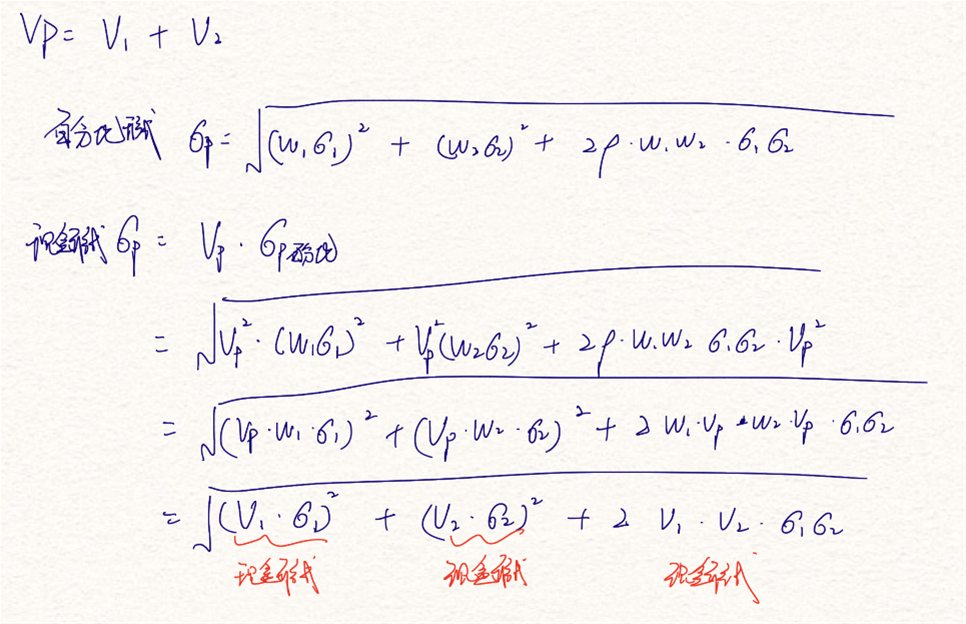 Vp = V₁ + V₂
百分比形式 σp = √((w₁σ₁)² + (w₂σ₂)² + 2ρ·w₁w₂·σ₁σ₂)
现金形式 σp = Vp · σp百分比
= √(Vp²·(w₁σ₁)² + Vp²(w₂σ₂)² + 2ρ·w₁w₂ σ₁σ₂·Vp²)
= √((Vp·w₁·σ₁)² + (Vp·w₂·σ₂)² + 2 w₁·Vp·w₂·Vp·σ₁σ₂)
= √((V₁·σ₁)² + (V₂·σ₂)² + 2 V₁·V₂·σ₁σ₂)
现金形式 现金形式 现金形式